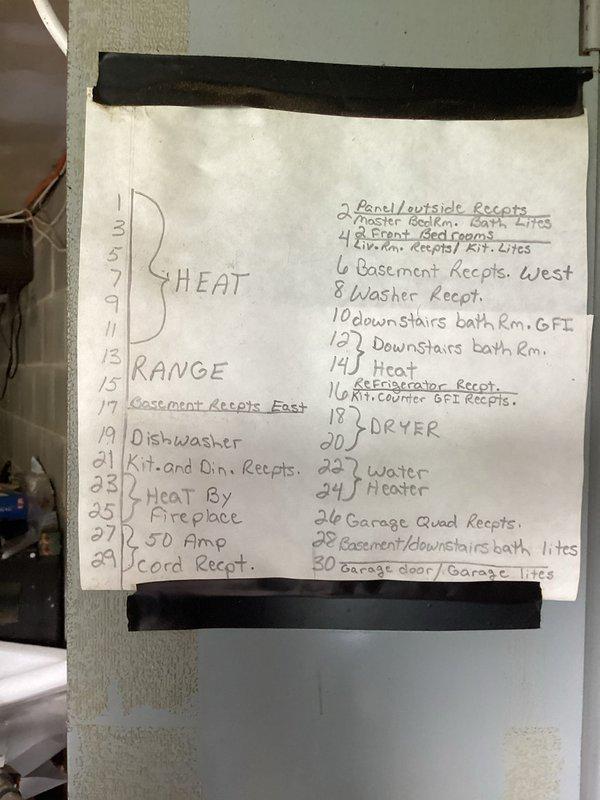 1
3
5
7
9
11
HEAT
13
15
RANGE
17 Basement Recpts East
19 Dishwasher
21 Kit. and Din. Recpts.
23
25
Heat By
Fireplace
27
29
50 Amp
Cord Recpt.
2 Panel/outside Recpts
Master BedRm. Bath Lites
4 2 Front Bedrooms
Liv. Rm. Recpts/ Kit. Lites
6 Basement Recpts. West
8 Washer Recpt.
10 downstairs bath Rm. GFI
12
14
Downstairs bath Rm.
Heat
16 Refrigerator Recpt.
Kit. Counter GFI Recpts.
18
20
DRYER
22
24
Water
Heater
26 Garage Quad Recpts.
28 Basement/downstairs bath lites
30
Garage door/Garage lites